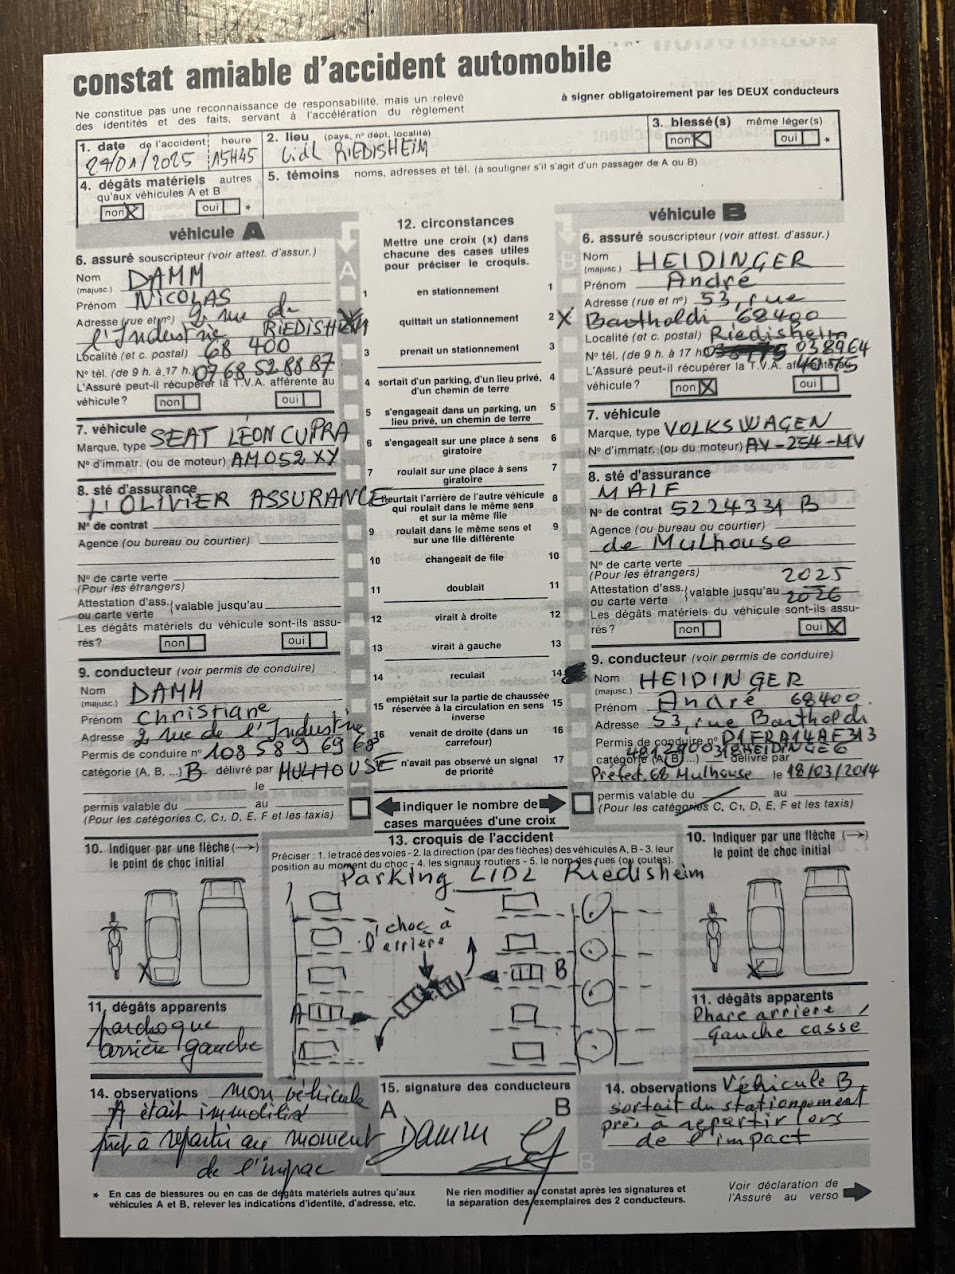 constat amiable d'accident automobile
Ne constitue pas une reconnaissance de responsabilité, mais un relevé
des identités et des faits, servant à l'accélération du règlement
à signer obligatoirement par les DEUX conducteurs
1. date de l'accident heure
/01/2025 15H45
2. lieu (pays, n° dépt, localité)
Lidl RIEDISHEIM
3. blessé(s) même léger(s)
non X oui *
4. dégâts matériels autres
qu'aux véhicules A et B
non X oui *
5. témoins noms, adresses et tél. (à souligner s'il s'agit d'un passager de A ou B)
véhicule A
6. assuré souscripteur (voir attest. d'assur.)
Nom (majusc.) DAMM
Prénom NICOLAS
Adresse (rue et n°) 2 rue de
l'Industrie RIEDISHEIM
Localité (et c. postal) 68 400
N° tél. (de 9 h. à 17 h.) 07 68 52 88 87
L'Assuré peut-il récupérer la T.V.A. afférente au
véhicule ? non oui
7. véhicule
Marque, type SEAT LEON CUPRA
N° d'immatr. (ou de moteur) AM052XY
8. sté d'assurance
L'OLIVIER ASSURANCE
N° de contrat
Agence (ou bureau ou courtier)
N° de carte verte
(Pour les étrangers)
Attestation d'ass.
ou carte verte
valable jusqu'au
Les dégâts matériels du véhicule sont-ils assu-
rés ? non oui
9. conducteur (voir permis de conduire)
Nom (majusc.) DAMM
Prénom Christiane
Adresse 2 rue de l'Industrie
Permis de conduire n° 108 589 69 68
catégorie (A, B, ...) B délivré par MULHOUSE
le
permis valable du au
(Pour les catégories C, C1, D, E, F et les taxis)
10. Indiquer par une flèche (→)
le point de choc initial
X
11. dégâts apparents
parchoque
arrière gauche
14. observations mon véhicule
A était immobilisé
prêt à repartir au moment
de l'impac
12. circonstances
Mettre une croix (x) dans
chacune des cases utiles
pour préciser le croquis.
A B
1 en stationnement 1
X quittait un stationnement 2 X
3 prenait un stationnement 3
4 sortait d'un parking, d'un lieu privé, 4
d'un chemin de terre
5 s'engageait dans un parking, un 5
lieu privé, un chemin de terre
6 s'engageait sur une place à sens 6
giratoire
7 roulait sur une place à sens 7
giratoire
heurtait l'arrière de l'autre véhicule 8
qui roulait dans le même sens
et sur la même file
9 roulait dans le même sens et 9
sur une file différente
10 changeait de file 10
11 doublait 11
12 virait à droite 12
13 virait à gauche 13
14 reculait 14
15 empiétait sur la partie de chaussée 15
réservée à la circulation en sens
inverse
16 venait de droite (dans un 16
carrefour)
17 n'avait pas observé un signal 17
de priorité
indiquer le nombre de
cases marquées d'une croix
13. croquis de l'accident
Préciser : 1. le tracé des voies - 2. la direction (par des flèches) des véhicules A, B - 3. leur
position au moment du choc - 4. les signaux routiers - 5. le nom des rues (ou routes).
Parking LIDL Riedisheim
choc à
l'arrière
A
B
15. signature des conducteurs
A B
Damm
véhicule B
6. assuré souscripteur (voir attest. d'assur.)
Nom (majusc.) HEIDINGER
Prénom André
Adresse (rue et n°) 53, rue
Bartholdi 68400
Localité (et c. postal) Riedisheim
N° tél. (de 9 h. à 17 h.) 038964
L'Assuré peut-il récupérer la T.V.A. afférente au
véhicule ? non X oui
7. véhicule
Marque, type VOLKSWAGEN
N° d'immatr. (ou du moteur) AV-254-MV
8. sté d'assurance
MAIF
N° de contrat 5224331 B
Agence (ou bureau ou courtier)
de Mulhouse
N° de carte verte
(Pour les étrangers)
2025
Attestation d'ass.
ou carte verte
valable jusqu'au 2026
Les dégâts matériels du véhicule sont-ils assu-
rés ? non oui X
9. conducteur (voir permis de conduire)
Nom (majusc.) HEIDINGER
Prénom André 68400
Adresse 53, rue Bartholdi
Permis de conduire n° D1FRA14AE313
catégorie (A, B ...) délivré par
Préfect. 68 Mulhouse le 18/03/2014
permis valable du au
(Pour les catégories C, C1, D, E, F et les taxis)
10. Indiquer par une flèche (→)
le point de choc initial
X
11. dégâts apparents
Phare arrière
gauche cassé
14. observations Véhicule B
sortait du stationnement
près à repartir lors
de l'impact
* En cas de blessures ou en cas de dégâts matériels autres qu'aux
véhicules A et B, relever les indications d'identité, d'adresse, etc.
Ne rien modifier au constat après les signatures et
la séparation des exemplaires des 2 conducteurs.
Voir déclaration de
l'Assuré au verso